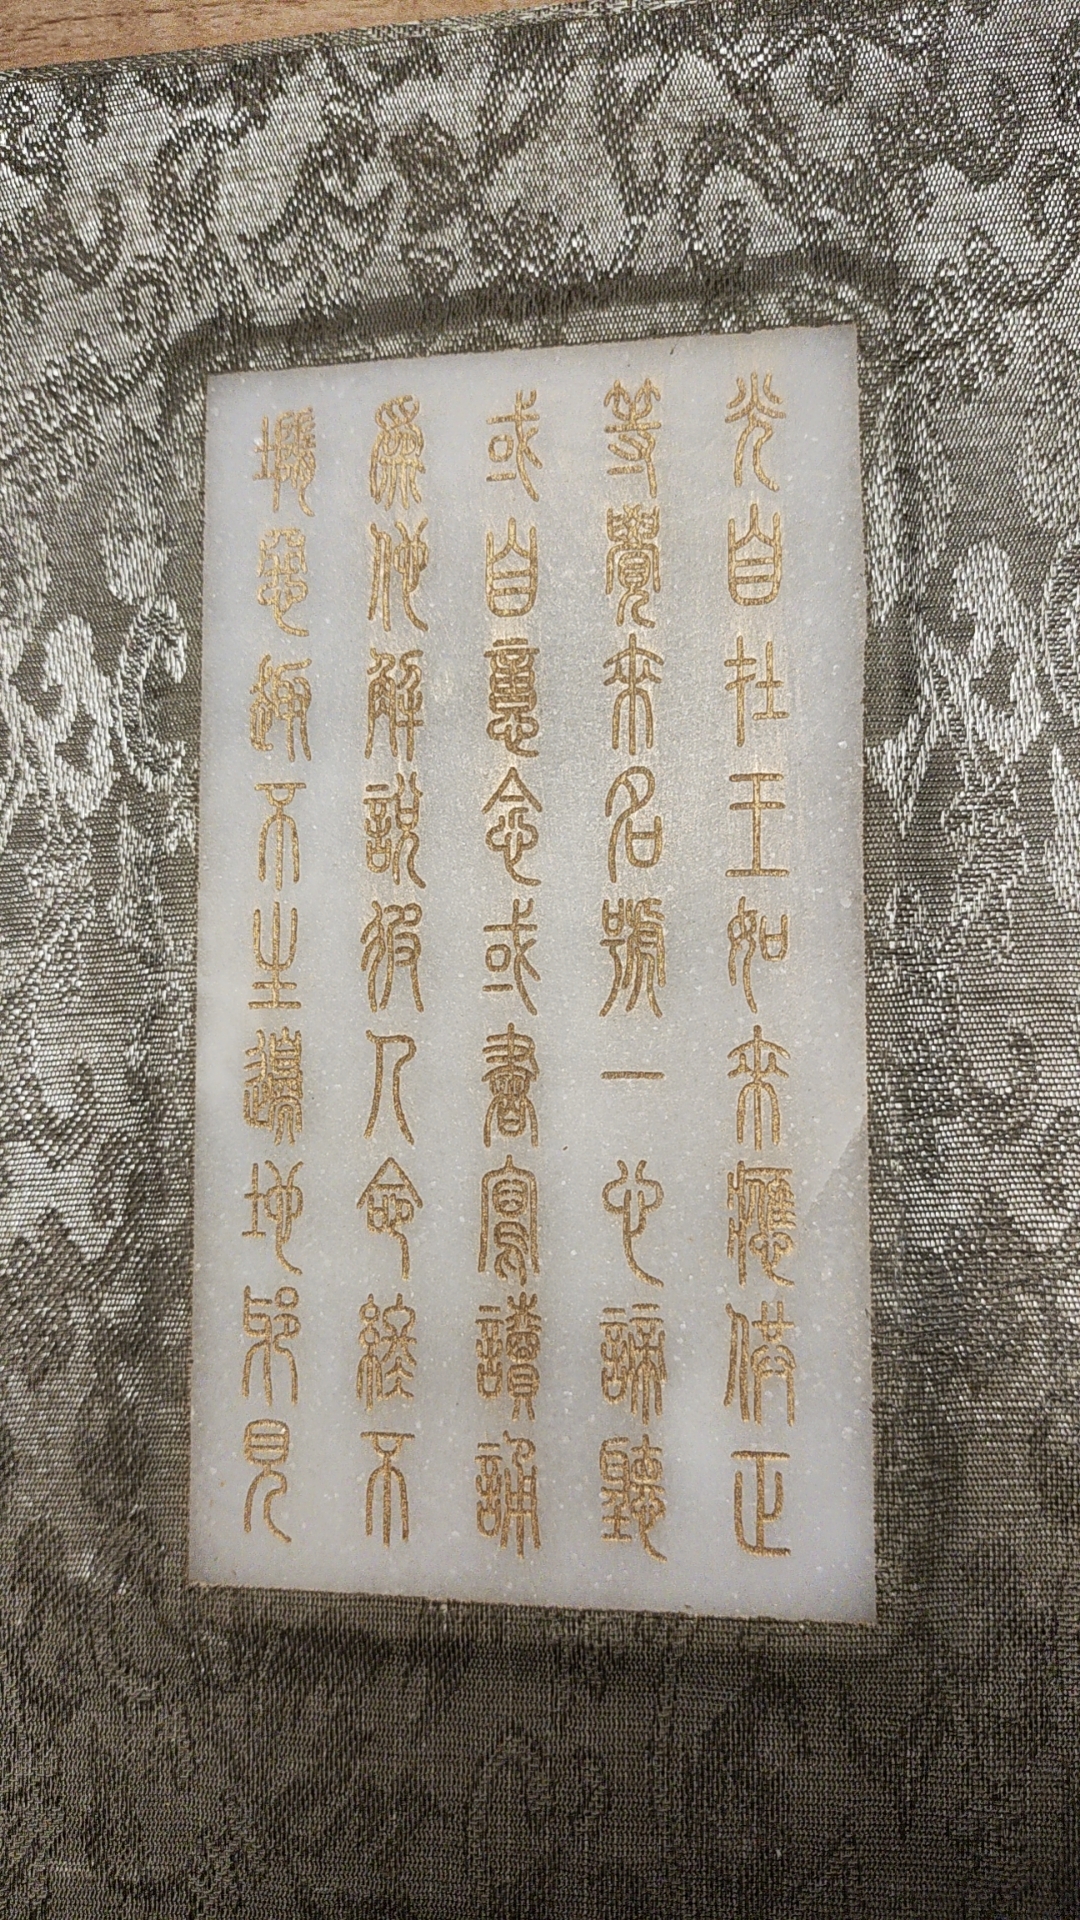 光自在王如來應供正
等覺來名號一心諦聽
或自意念或書寫讀誦
為他解說彼人命終不
墮惡趣不生邊地邪見